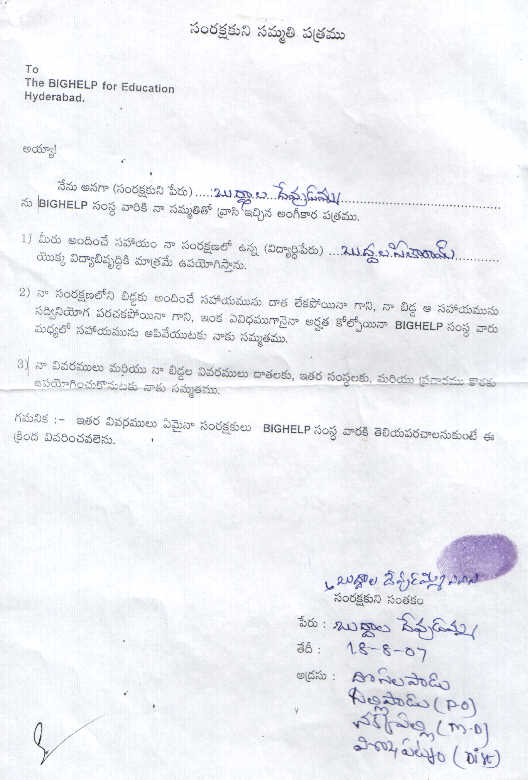 సంరక్షకుని సమ్మతి పత్రము
To
The BIGHELP for Education
Hyderabad.
అయ్యా!
నేను అనగా (సంరక్షకుని పేరు)....బుద్దాల దేవుడమ్మ
ను BIGHELP సంస్థ వారికి నా సమ్మతితో వ్రాసి ఇచ్చిన అంగీకార పత్రము.
1) మీరు అందించే సహాయం నా సంరక్షణలో ఉన్న (విద్యార్థిపేరు) ...బుద్దాల
యొక్క విద్యాభివృద్ధికి మాత్రమే ఉపయోగిస్తాను.
2) నా సంరక్షణలోని బిడ్డకు అందించే సహాయమును దాత లేకపోయినా గాని, నా బిడ్డ ఆ సహాయమును
సద్వినియోగ పరచకపోయినా గాని, ఇంక ఏవిధముగానైనా అర్హత కోల్పోయినా BIGHELP సంస్థ వారు
మధ్యలో సహాయమును ఆపివేయుటకు నాకు సమ్మతము.
3) నా వివరములు మరియు నా బిడ్డల వివరములు దాతలకు, ఇతర సంస్థలకు, మరియు ప్రచారము కొరకు
ఉపయోగించుకొనుటకు నాకు సమ్మతము.
గమనిక :- ఇతర వివరములు ఏమైనా సంరక్షకులు BIGHELP సంస్థ వారికి తెలియపరచాలనుకుంటే ఈ
క్రింద వివరించవలెను.
బుద్దాల దేవుడమ్మ
సంరక్షకుని సంతకం
పేరు : బుద్దాల దేవుడమ్మ
తేదీ : 18-8-07
అడ్రసు : దోసలపాడు
పల్లిపాడు (P.O)
(M.D)
(Dist)